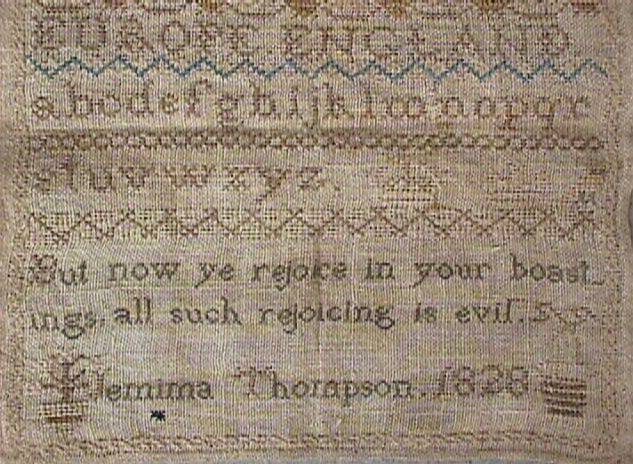 EUROPE ENGLAND
a b c d e f g h i j k l m n o p q r
s t u v w x y z
But now ye rejoice in your boast
ings. all such rejoicing is evil.
Jemima Thompson. 1828